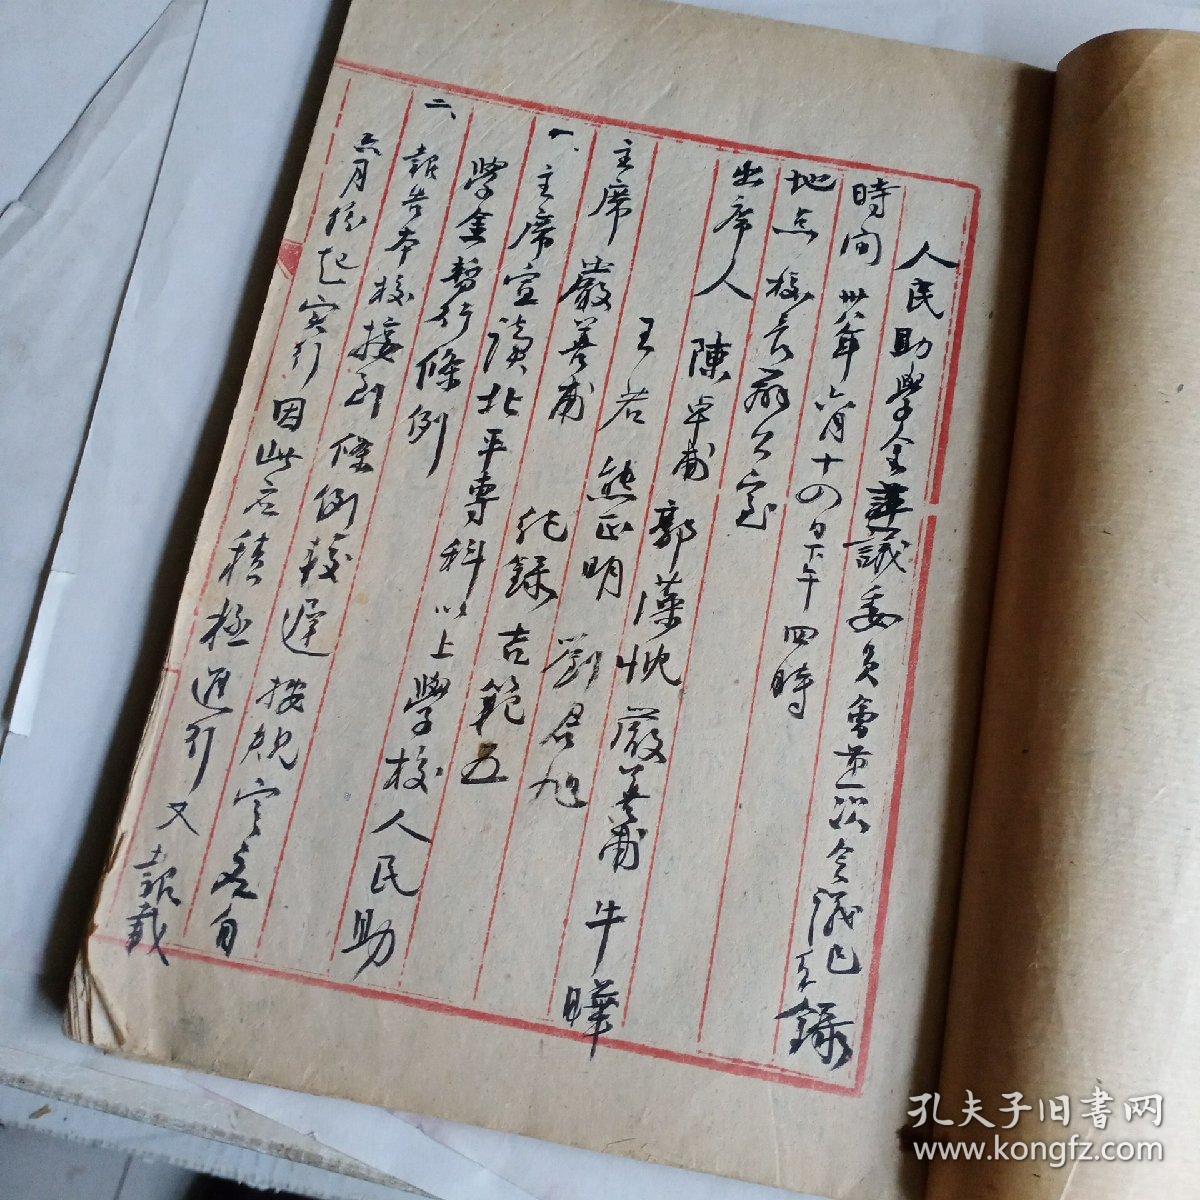 人民助學金評議委員會第一次會議記錄
時间 卅八年六月十四日下午四時
地点 校長办公室
出席人 陳卓甫 郭薻忱 嚴善甫 牛曄
王岩 熊正明 劉君旭
主席 嚴善甫 纪錄 古範五
一、主席宣讀北平專科以上學校人民助
學金暫行條例
二、報告本校接到條例較遲按規定應自
六月份起实行因此应積極進行 又報載
孔夫子旧书网
www.kongfz.com